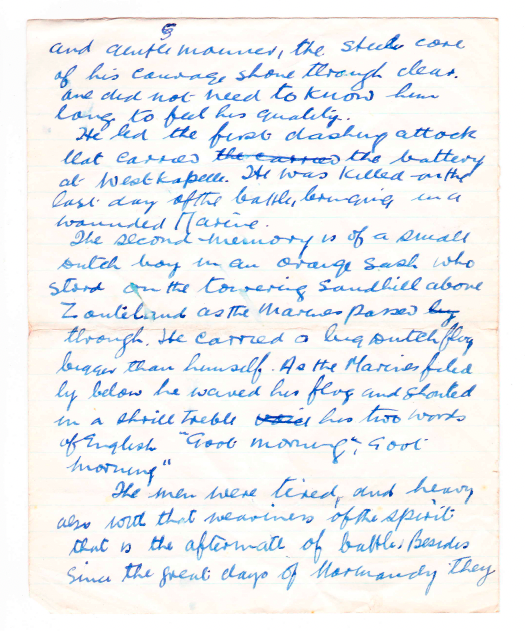 3
and gentle manner, the steel core
of his courage shone through clear.
one did not need to know him
long to feel his quality.
He led the first dashing attack
that carried the carried the battery
at Westkapelle. He was killed on the
last day of the battle, bringing in a
wounded Marine.
The second memory is of a small
Dutch boy in an orange sash who
stood on the towering Sandhill above
Zouteland as the Marines passed by
through. He carried a big Dutch flag
bigger than himself. As the Marines filed
by below he waved his flag and shouted
in a shrill treble voice his two words
of English "Goot morning", Goot
morning"
The men were tired, and heavy
also with that weariness of the spirit
that is the aftermath of battle. Besides
since the great days of Normandy they